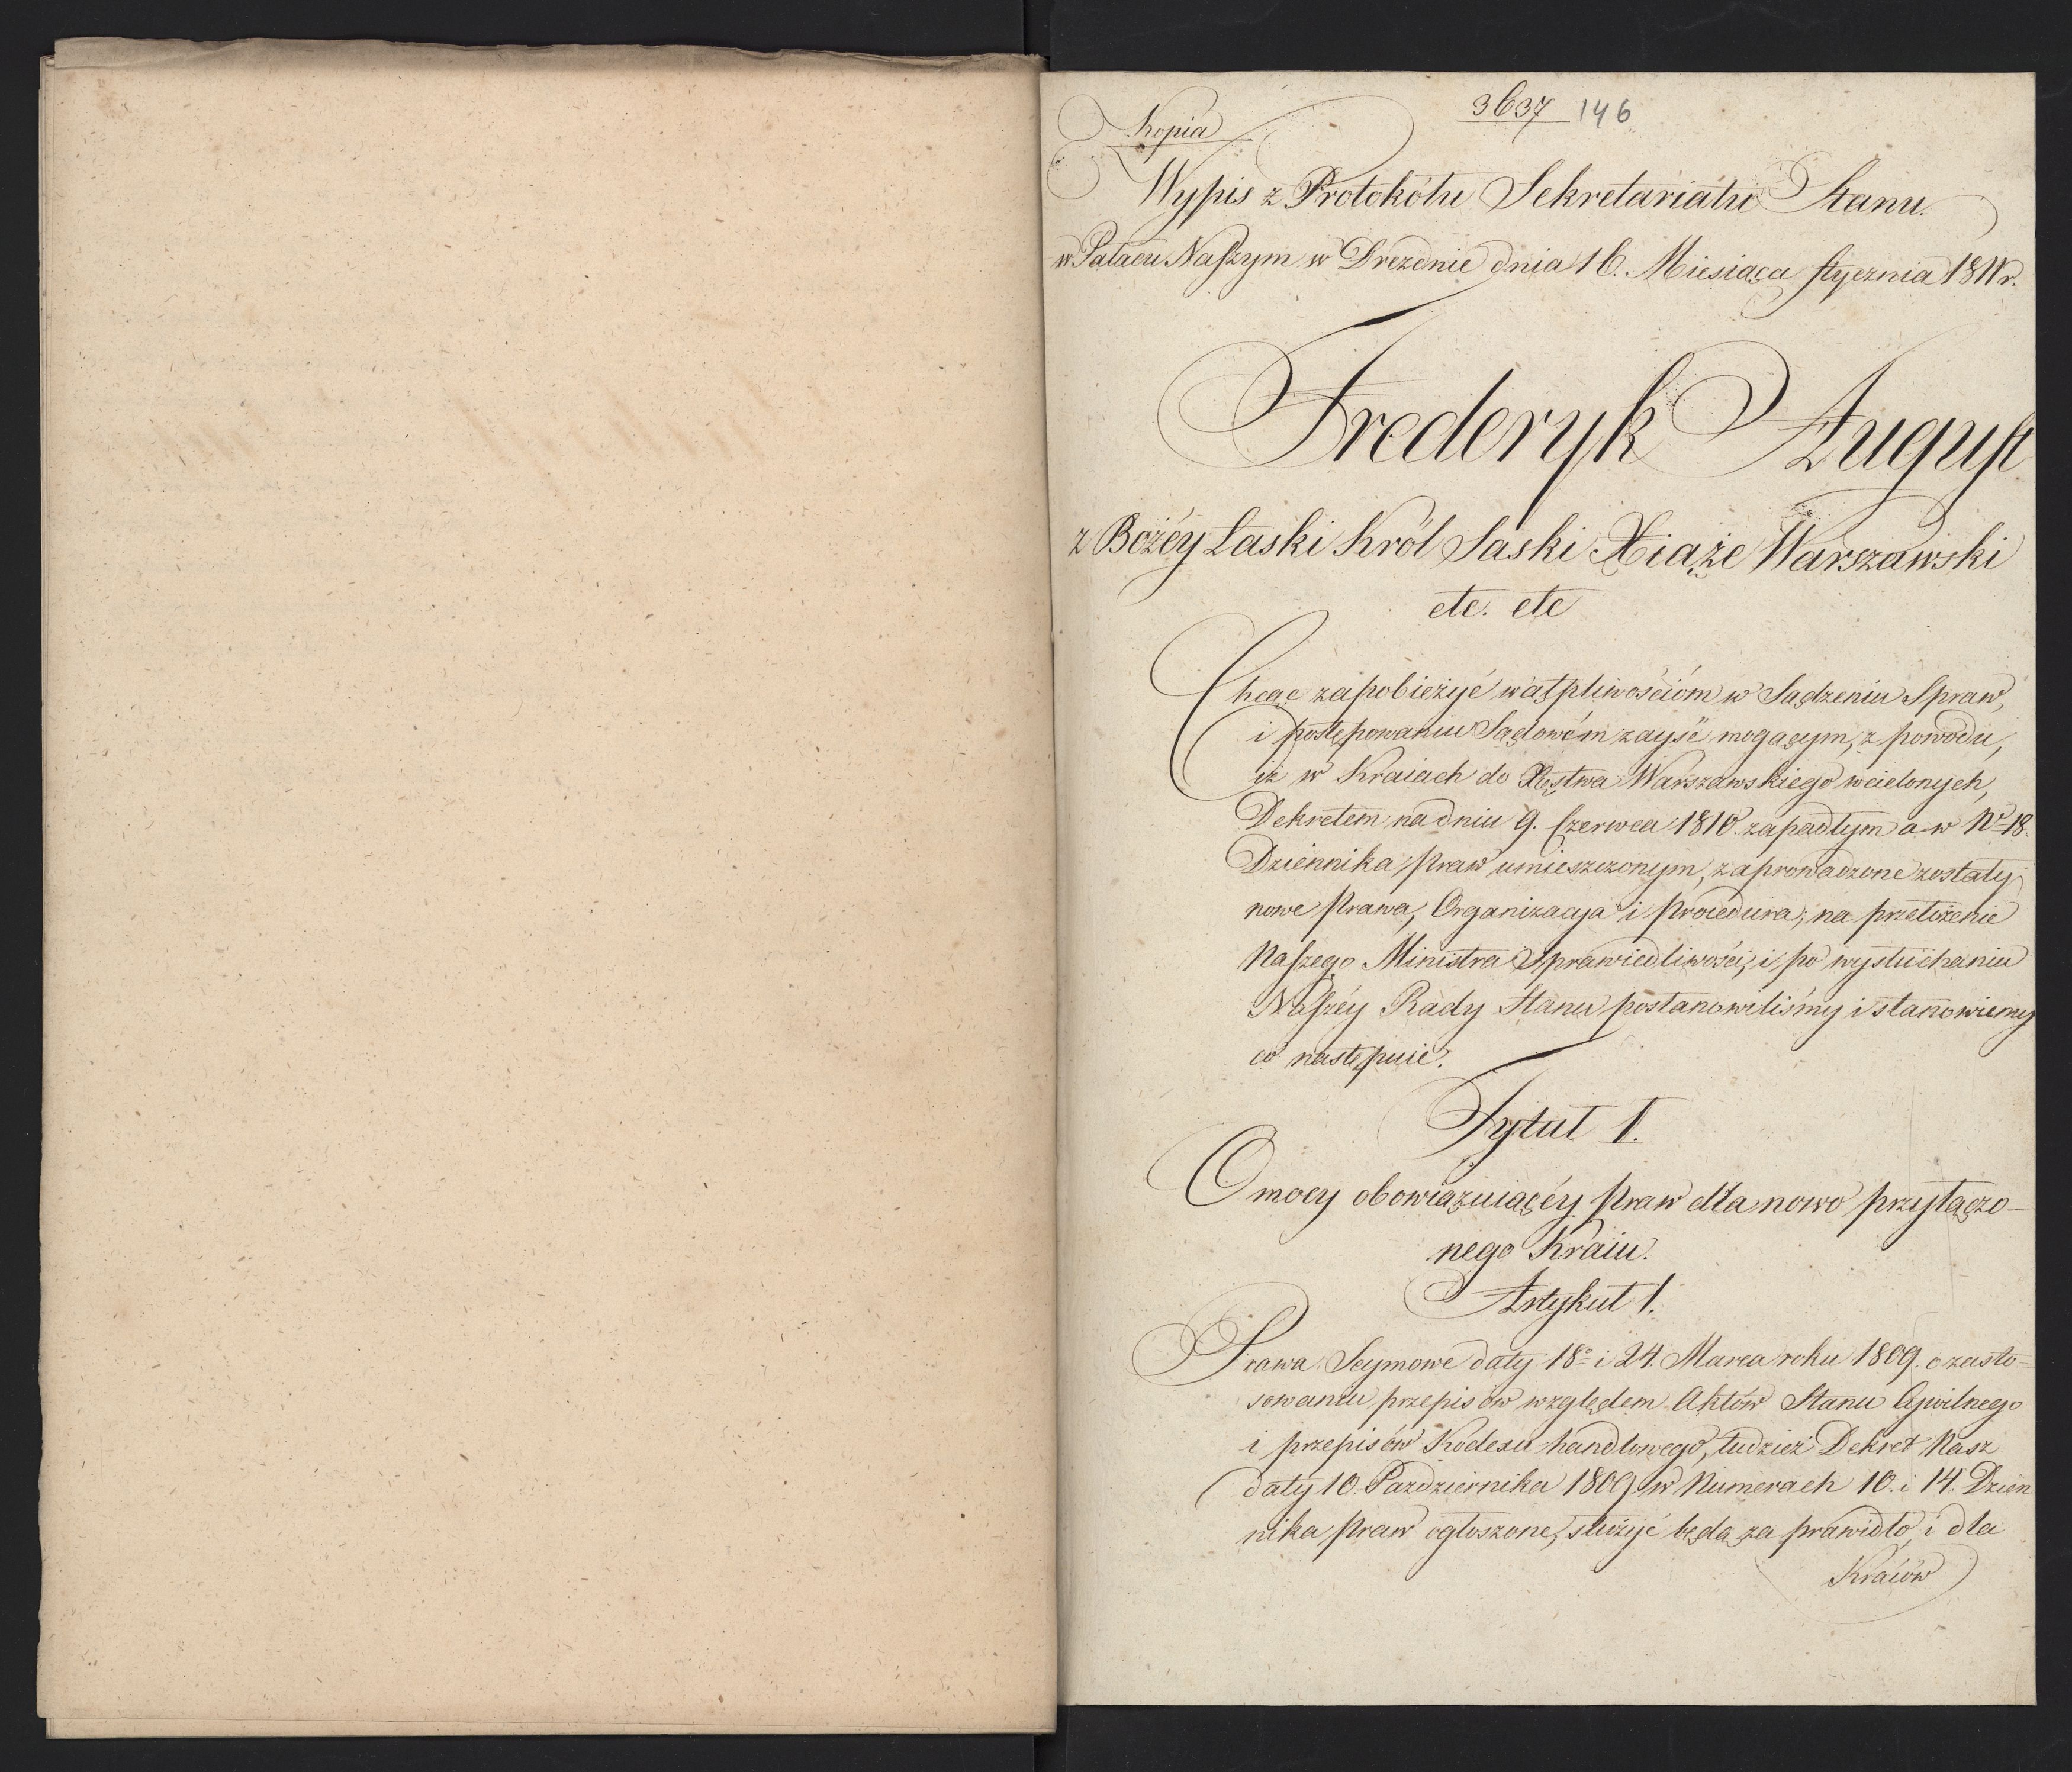 3637 146
Kopia
Wypis z Protokółu Sekretariatu Stanu.
w Pałacu Naszym w Dreźnie dnia 16. Miesiąca stycznia 1811 r.
Frederyk August
z Bożéy Łaski Król Saski Xiąże Warszawski
etc. etc
Chcąc zapobieżyć wątpliwościóm w Sądzeniu Spraw,
i postępowaniu Sądowém zayść mogącym, z powodu,
iż w Kraiach do Xięstwa Warszawskiego wcielonych,
Dekretem na dniu 9. Czerwca 1810. zapadłym a w Nº 18.
Dziennika praw umieszczonym, zaprowadzone zostały
nowe prawa, Organizacya i procedura, na przełożenie
Naszego Ministra Sprawiedliwości, i po wysłuchaniu
Naszéy Rady Stanu postanowiliśmy i stanowiemy
co następuie.
Tytuł I.
O mocy obowiązuiącéy praw dla nowo przyłączo-
nego Kraiu.
Artykuł 1.
Prawa Seymowe daty 18º i 24. Marca roku 1809. o zasto-
sowaniu przepisów względem Aktów Stanu Cywilnego
i przepisów Kodexu handlowego, tudzież Dekret Nasz
daty 10. Pazdziernika 1809 w Numerach 10. i 14. Dzien
nika praw ogłoszone, służyć będą za prawidło, i dla
Kraiów